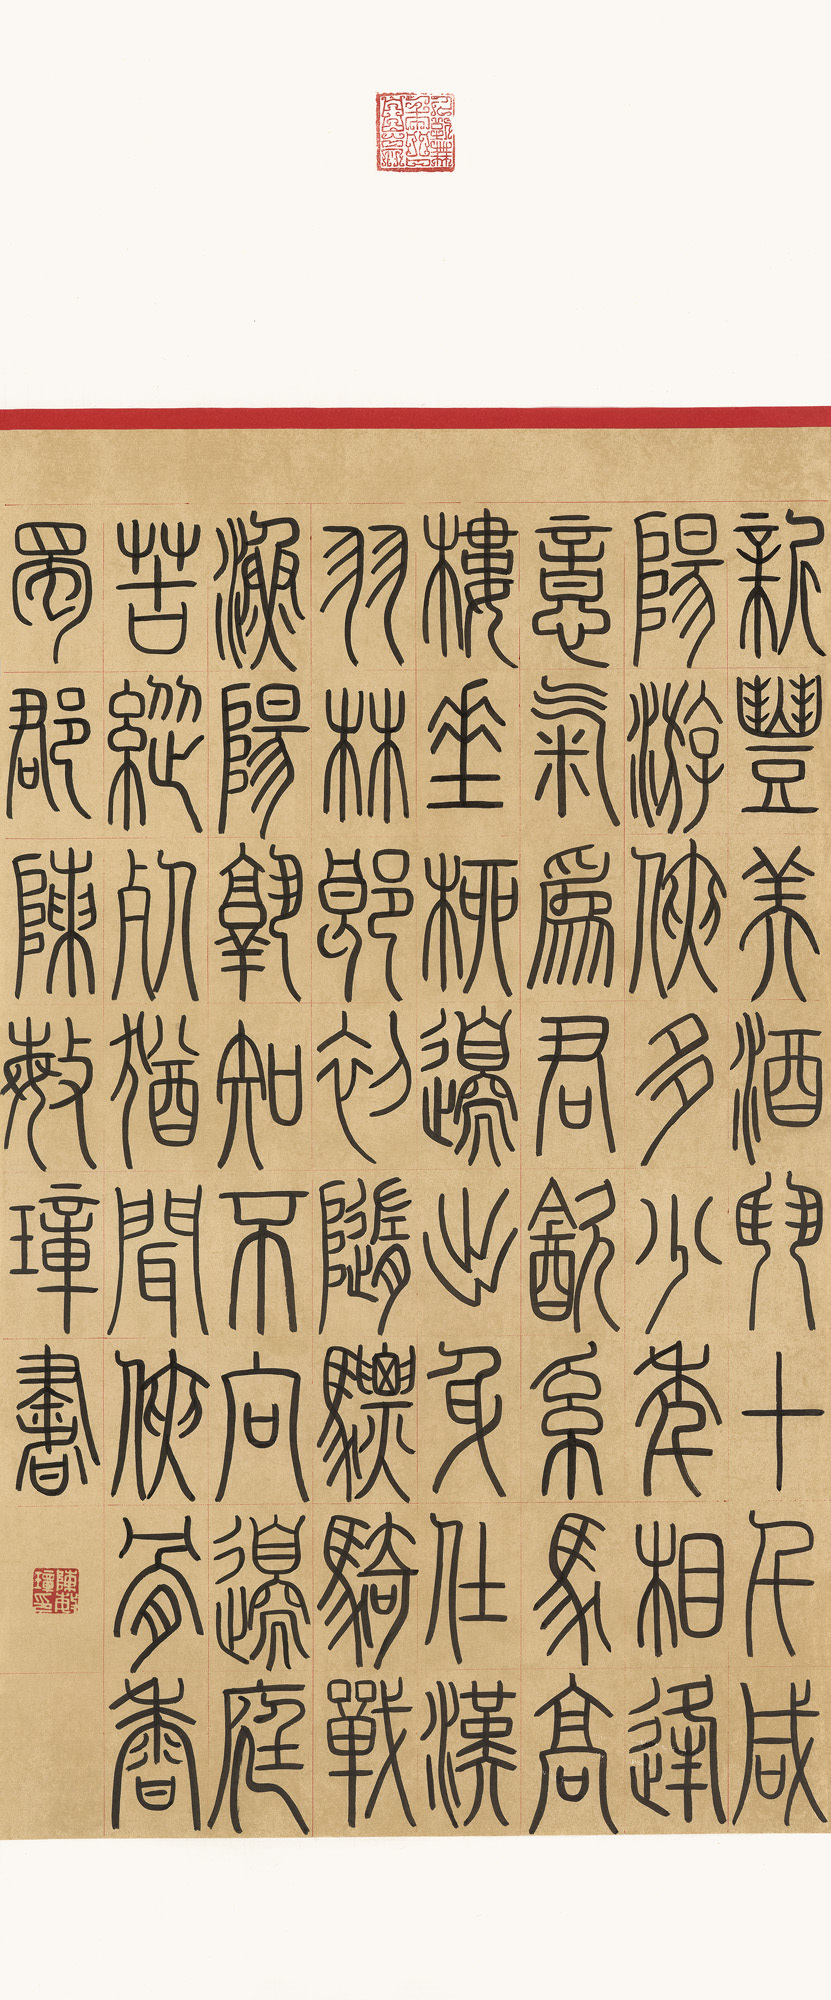 新豐美酒鬥十千咸
陽游俠多少年相逢
意氣爲君飲系馬高
樓垂柳邊出身仕漢
羽林郎初隨驃騎戰
漁陽孰知不向邊庭
苦縱死猶聞俠骨香
蜀郡陳敏璋書
陳敏璋印